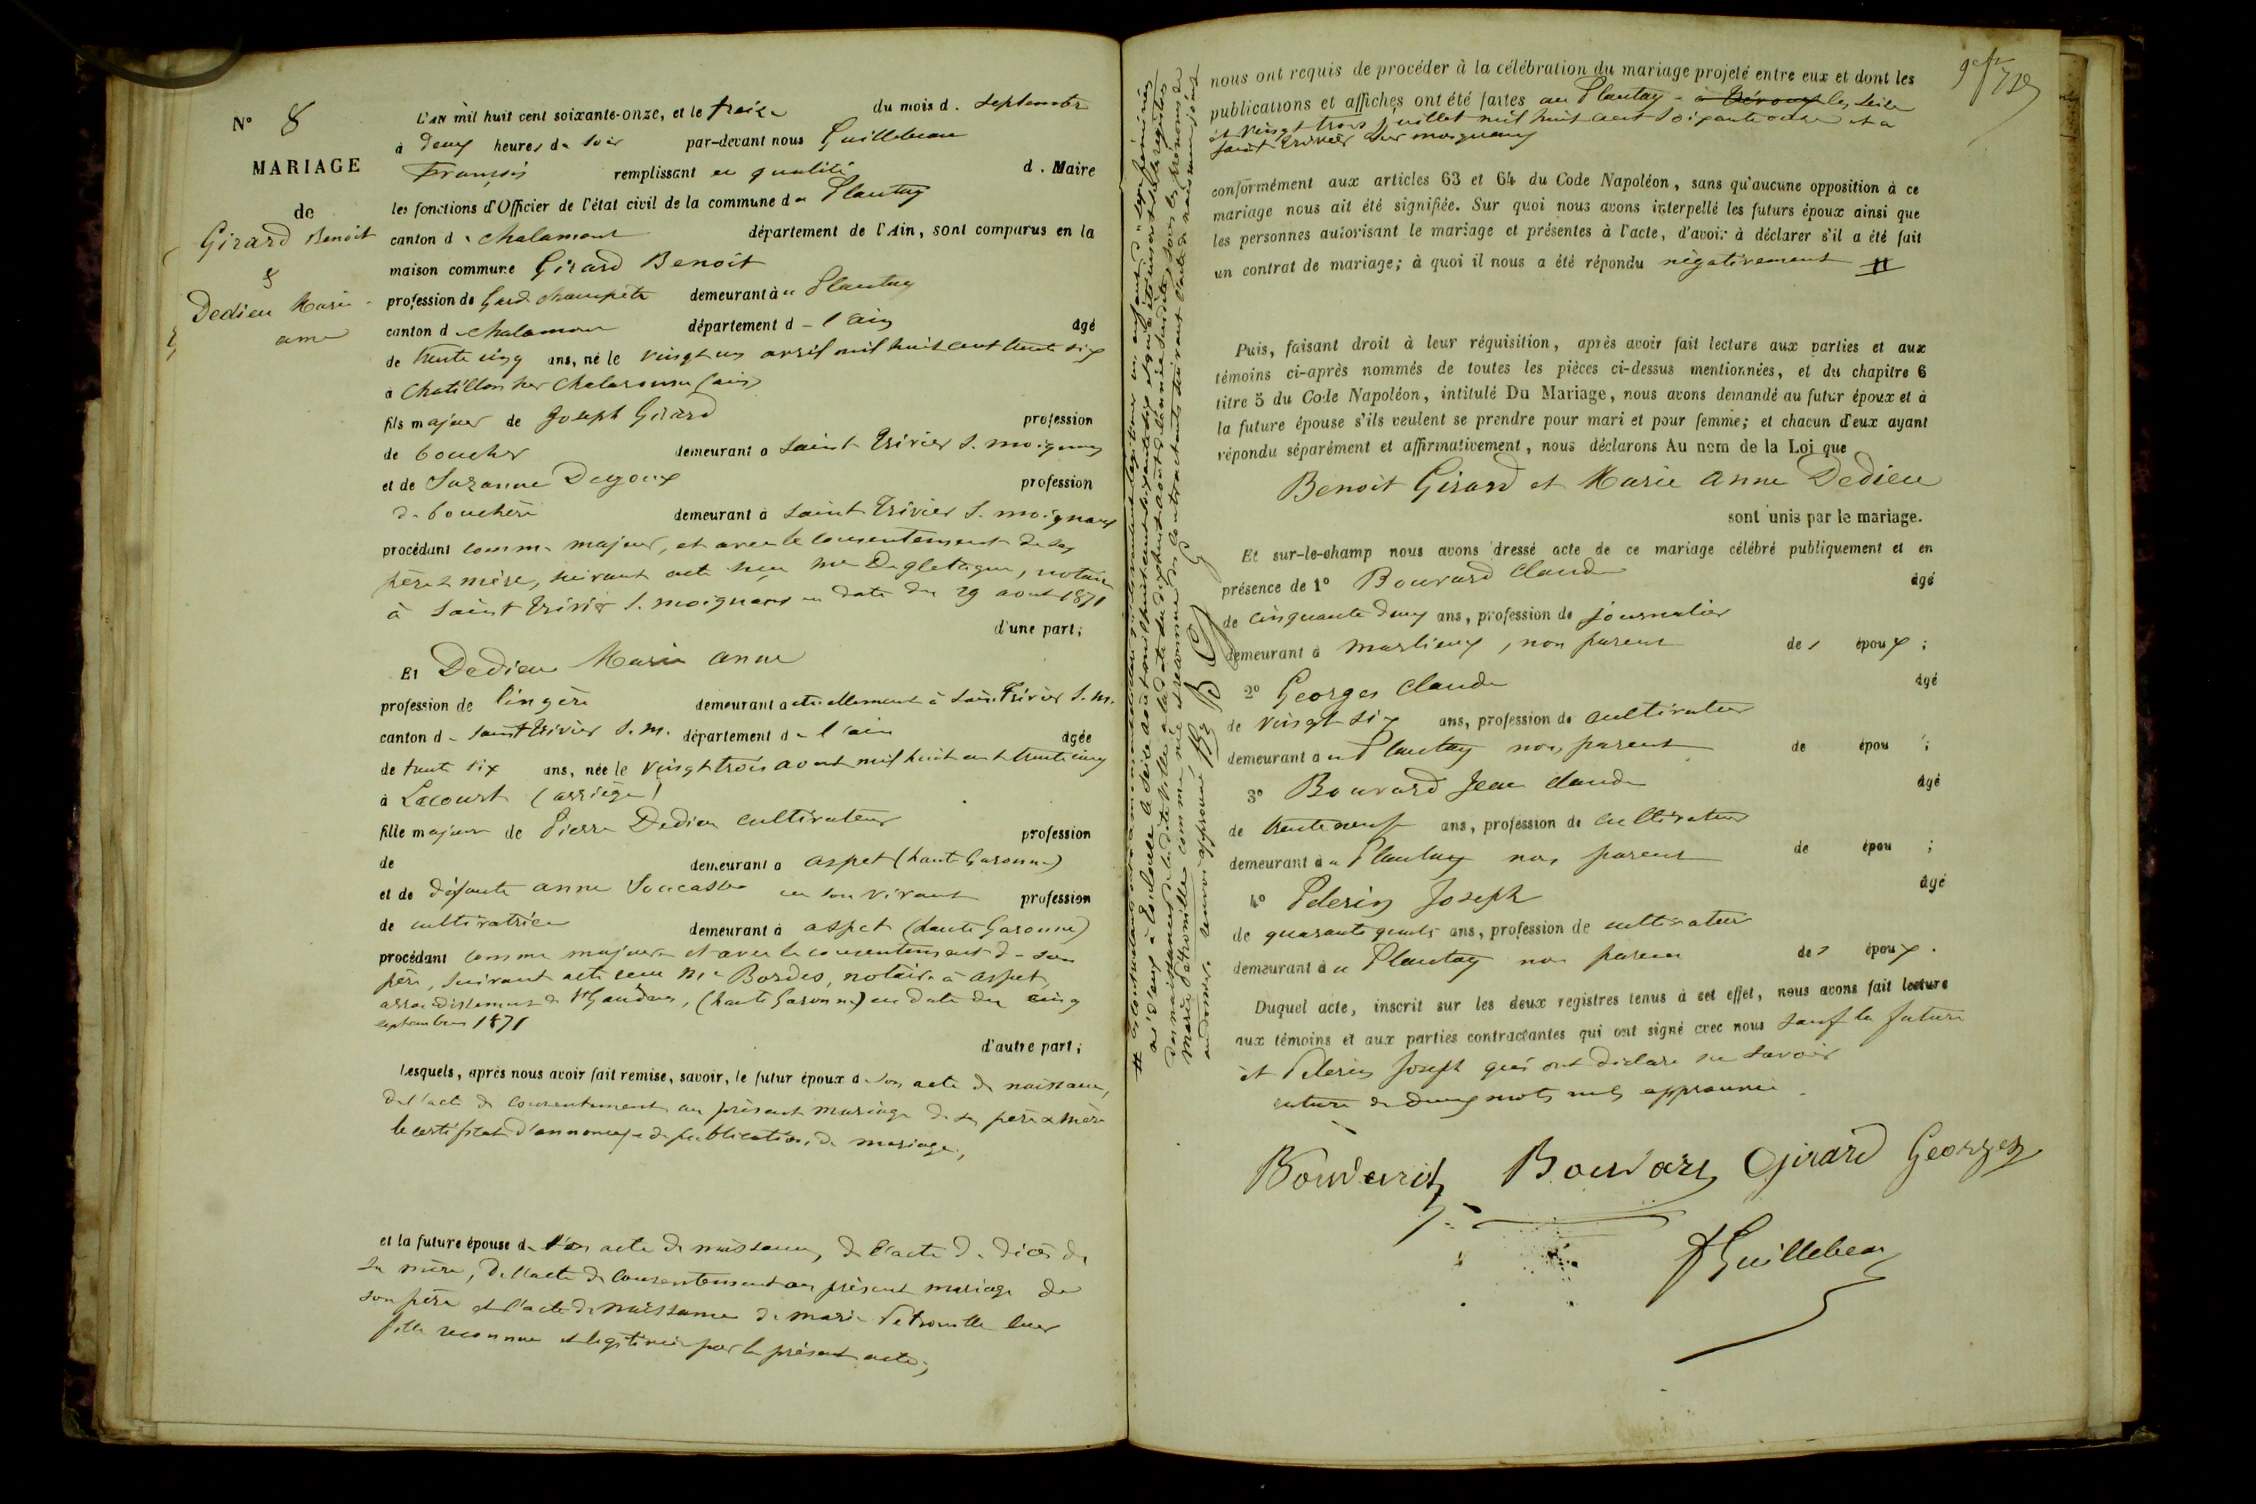 N° 8
MARIAGE
de
Girard Benoit
&
Dedieu Marie
anne
L'AN mil huit cent soixante-onze, et le treize du mois d. septembre
à deux heures du soir par-devant nous Guillebeau
François remplissant en qualité d. Maire
les fonctions d'Officier de l'état civil de la commune du Plantay
canton de chalamont département de l'Ain, sont comparus en la
maison commune Girard Benoit
profession de Garde champêtre demeurant à u Plantay
canton de chalamont département de l'ain âgé
de trente cinq ans, né le vingt un avril mil huit cent trente six
à Chatillon sur Chalaronne (ain)
fils majeur de Joseph Girard profession
de boucher demeurant a saint Trivier s. moignans
et de Suzanne Dugoux profession
de bouchère demeurant à saint Trivier s. moignans
procédant comme majeur, et avec le consentement de ses
père & mère, suivant acte reçu me Degletagne, notaire
à saint Trivier s. moignans en date du 29 aout 1871
d'une part;
Et Dedieu Marie anne
profession de lingère demeurant actuellement à saint Trivier s. m.
canton de saint Trivier s. m. département de l'ain âgée
de trente six ans, née le vingt trois aout mil huit cent trente cinq
à Lacourt (arriège)
fille majeure de Pierre Dedieu cultivateur profession
de demeurant a aspet (haute Garonne)
et de défunte anne Soucasse en son vivant profession
de cultivatrice demeurant à aspet (haute Garonne)
procédant comme majeure et avec le consentement de son
père, suivant acte reçu Me Bordes, notaire à aspet,
arrondissement de St Gaudens, (haute Garonne) en date du cinq
septembre 1871
d'autre part;
Lesquels, après nous avoir fait remise, savoir, le futur époux de son acte de naissance,
de l'acte de consentement au présent mariage de ses père & mère
le certificat d'annonces & de publication de mariage,
et la future épouse de son acte de naissance, de l'acte de décès de
sa mère, de l'acte de consentement au présent mariage de
son père et l'acte de naissance de marie Pétronille leur
fille reconnue et légitimée par le présent acte;
nous ont requis de procéder à la célébration du mariage projeté entre eux et dont les
publications et affiches ont été faites au Plantay - à Trévoux les seize
et vingt trois juillet mil huit cent soixante onze et a
saint Trivier sur moignans
conformément aux articles 63 et 64 du Code Napoléon, sans qu'aucune opposition à ce
mariage nous ait été signifiée. Sur quoi nous avons interpellé les futurs époux ainsi que
les personnes autorisant le mariage et présentes à l'acte, d'avoir à déclarer s'il a été fait
un contrat de mariage; à quoi il nous a été répondu négativement #
Puis, faisant droit à leur réquisition, après avoir fait lecture aux parties et aux
témoins ci-après nommés de toutes les pièces ci-dessus mentionnées, et du chapitre 6
titre 5 du Code Napoléon, intitulé Du Mariage, nous avons demandé au futur époux et à
la future épouse s'ils veulent se prendre pour mari et pour femme; et chacun d'eux ayant
répondu séparément et affirmativement, nous déclarons Au nom de la Loi que
Benoit Girard et Marie Anne Dedieu
sont unis par le mariage.
Et sur-le-champ nous avons dressé acte de ce mariage célébré publiquement et en
présence de 1° Bouvard Claude âgé
de cinquante deux ans, profession de journalier
demeurant à marlieux, non parent des époux;
2° Georges Claude âgé
de vingt six ans, profession de cultivateur
demeurant a u Plantay non parent de épou ;
3° Bouvard Jean claude âgé
de trente neuf ans, profession de cultivateur
demeurant à u Plantay non parent de épou ;
4° Pelerin Joseph âgé
de quarante quatre ans, profession de cultivateur
demeurant à u Plantay non parent des époux.
Duquel acte, inscrit sur les deux registres tenus à cet effet, nous avons fait lecture
aux témoins et aux parties contractantes qui ont signé avec nous sauf la future
et Pelerin Joseph qui ont déclaré ne savoir
rature de deux mots nuls approuvée
Bouvard Bouvard Girard Georges
F Guillebeau